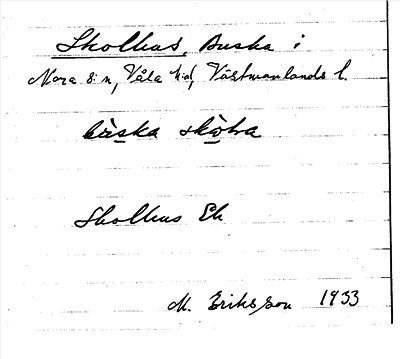 Skolhus, Buska i
Nora s:n, Våla hd, Västmanlands l.
bu̲ska
Skolhus Ek
M. Eriksson 1933